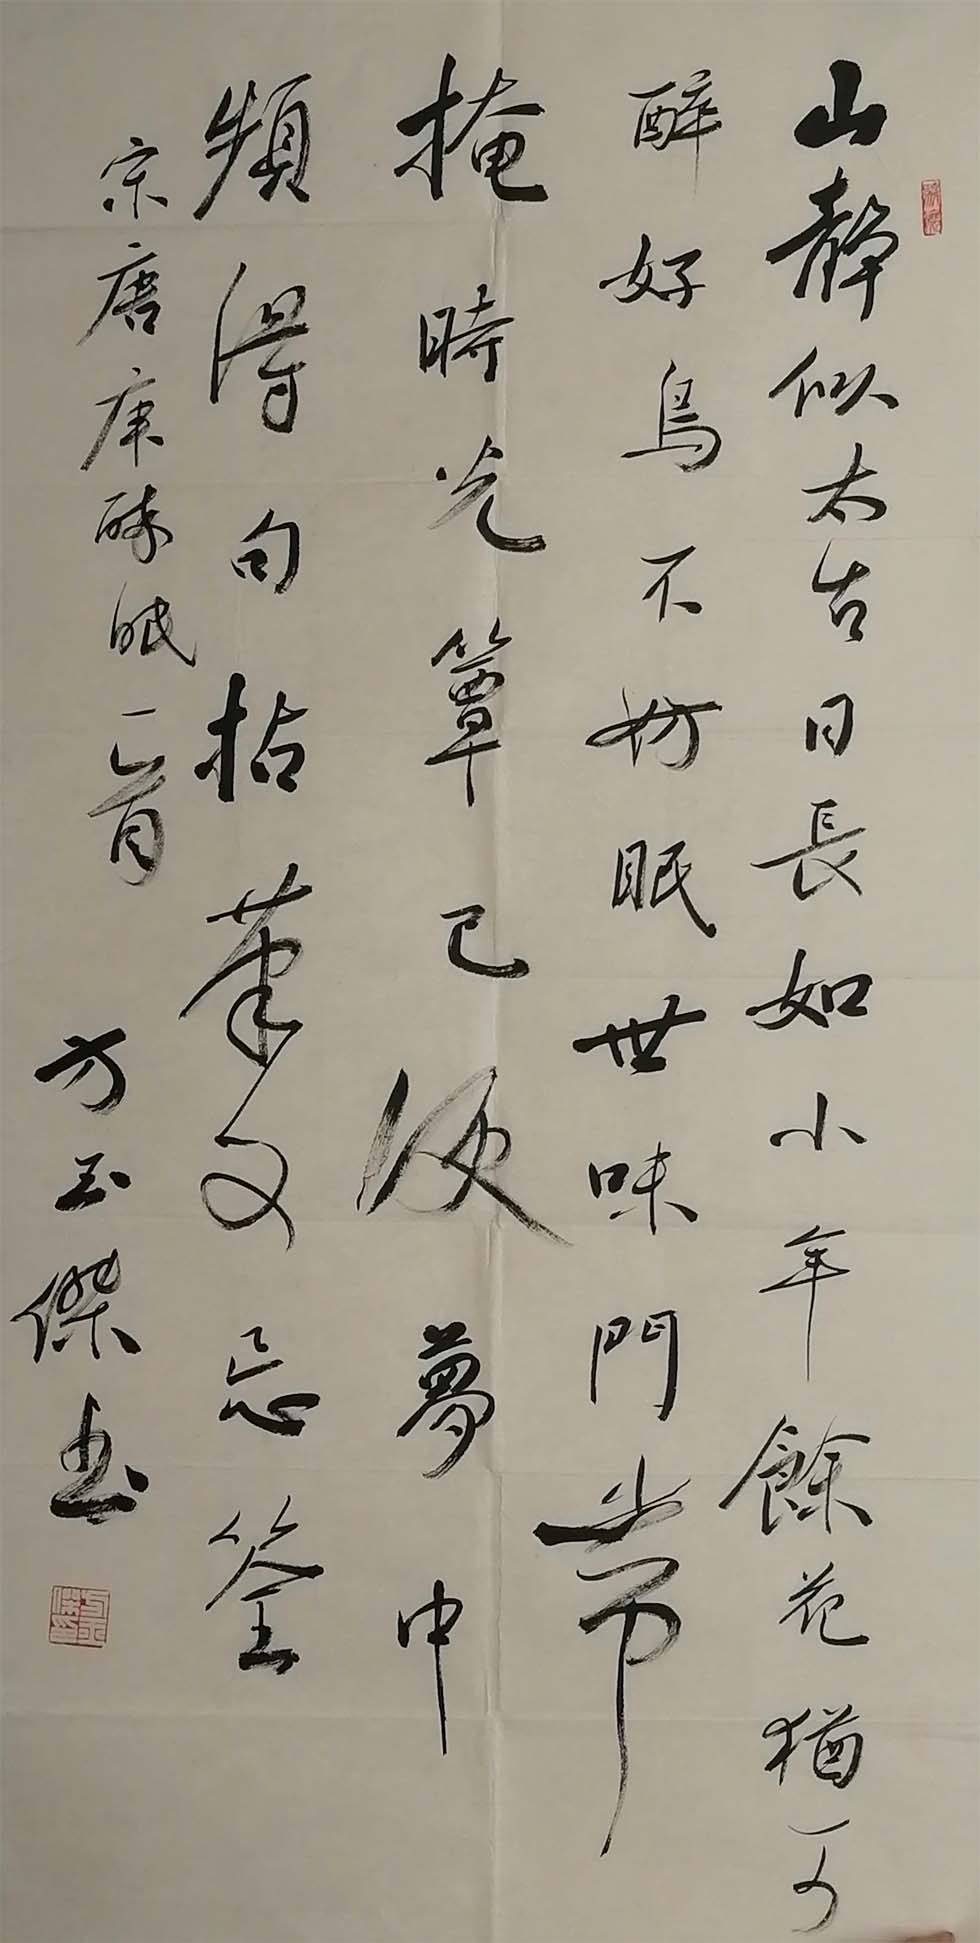 山靜似太古日長如小年餘花猶可
醉好鳥不妨眠世味門常
掩時光簟已便夢中
頻得句拈筆又忘筌
宋唐庚醉眠一首
方玉傑书